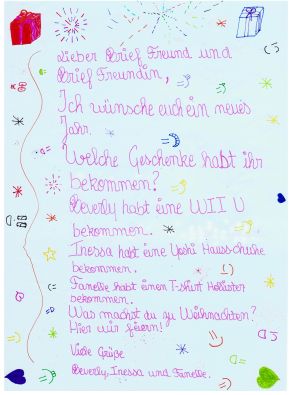 Lieber Brief Freund und
Brief Freundin,
Ich wünsche euch ein neues
Jahr.
Welche Geschenke habt ihr
bekommen?
Beverly habt eine WII U
bekommen.
Inessa habt eine Yoshi Hausschuhe
bekommen.
Fanelle habt einen T-shirt Hollister
bekommen.
Was machst du zu Weihnachten?
Hier wir feiern!
Viele Grüße
Beverly, Inessa und Fanelle.